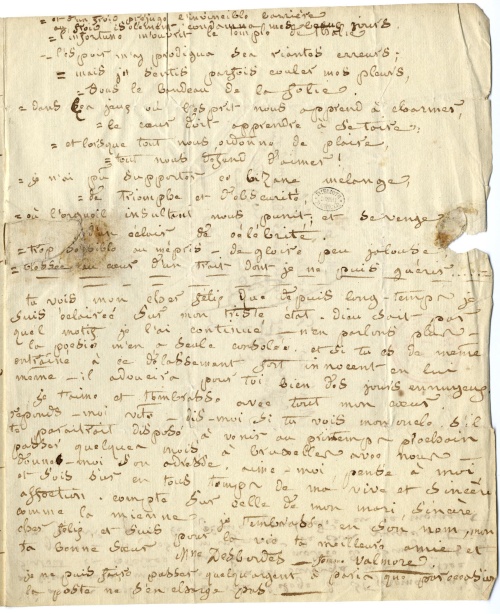 = et d'un froid préjugé l'invincible barrière
au froid isolement condamna mes beaux jours
= l'infortune m'ouvrit le temple de Thalie
= l'espoir m'y prodigua ses riantes erreurs;
= mais je sentis parfois couler mes pleurs,
= sous le bandeau de la folie.
= dans ces jeux où l'esprit nous apprend à charmer,
= le cœur doit apprendre à se taire;
= et lorsque tout nous ordonne de plaire,
= tout nous défend d'aimer!
= je n'ai pu supporter ce bizare mélange,
= de triomphe et d'obscurité,
= où l'orgueil insultant nous punit, et se venge
éclair de célébrité,
= trop sensible au mépris - de gloire peu jalouse
= blessée au cœur d'un trait dont je ne puis guérir ....
tu vois mon cher félix que depuis long-temps je
suis éclairée sur mon triste état - dieu sait par
quel motif je l'ai continué - n'en parlons plus
- la poésie m'en a seule consolée. et si tu es de même
entraîné à ce délassement fort innocent en lui
même - il adoucira pour toi bien des jours ennuyeux
je t'aime et t'embrasse avec tout mon cœur
réponds - moi vite - dis-moi si tu vois mon oncle, s'il
te paraîtrait disposé à venir au printemps prochain
passer quelques mois à bruxelles avec nous -
donne - moi son adresse. aime - moi pense à moi
et sois sur en tous temps de ma vive et sincère
affection. compte sur celle de mon mari, sincère
comme la mienne - je t'embrasse en son nom, mon
cher félix et suis pour la vie ta meilleure amie et
ta bonne sœur
Mme Desbordes - Valmore
je ne puis faire passer quelqu'argent à paris que par occasion
la poste ne s'en charge pas